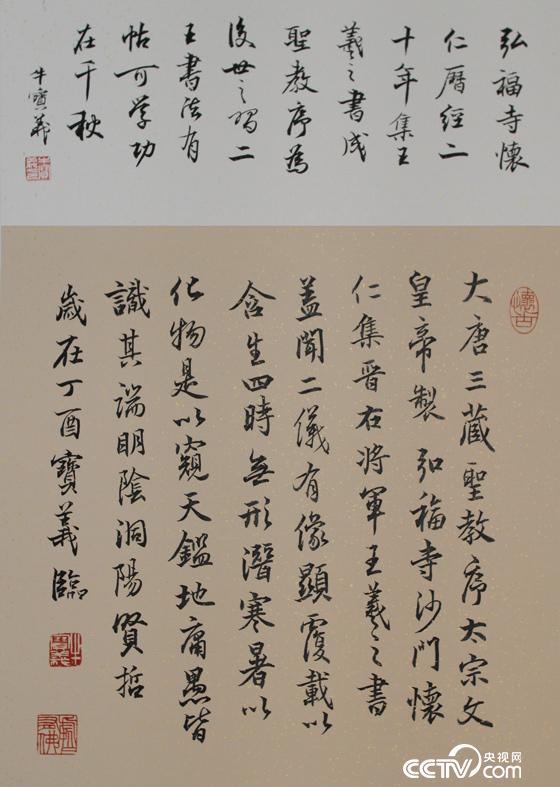 弘福寺懷
仁曆經二
十年集王
羲之書成
聖教序為
後世之習二
王書法有
帖可学功
在千秋
牛寶義
懷古
大唐三藏聖教序太宗文
皇帝製弘福寺沙門懷
仁集晉右将軍王羲之書
盖聞二儀有像顯覆載以
含生四時無形潛寒暑以
化物是以窺天鑑地庸愚皆
識其端明陰洞陽賢哲
歲在丁酉寶義臨
央视网
CCTV.com